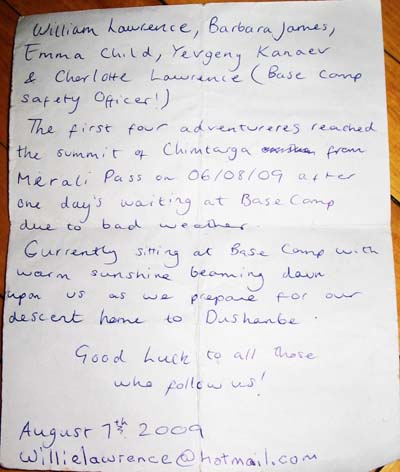 William Lawrence, Barbara James,
Emma Child, Yevgeny Kanaev
& Charlotte Lawrence (Base Camp
safety Officer!)
The first four adventureres reached
the summit of Chimtarga from
Merali Pass on 06/08/09 after
one day's waiting at Base Camp
due to bad weather.
Currently sitting at Base Camp with
warm sunshine beaming down
upon us as we prepare for our
descent home to Dushanbe.
Good Luck to all those
who follow us!
August 7th 2009
willielawrence@hotmail.com